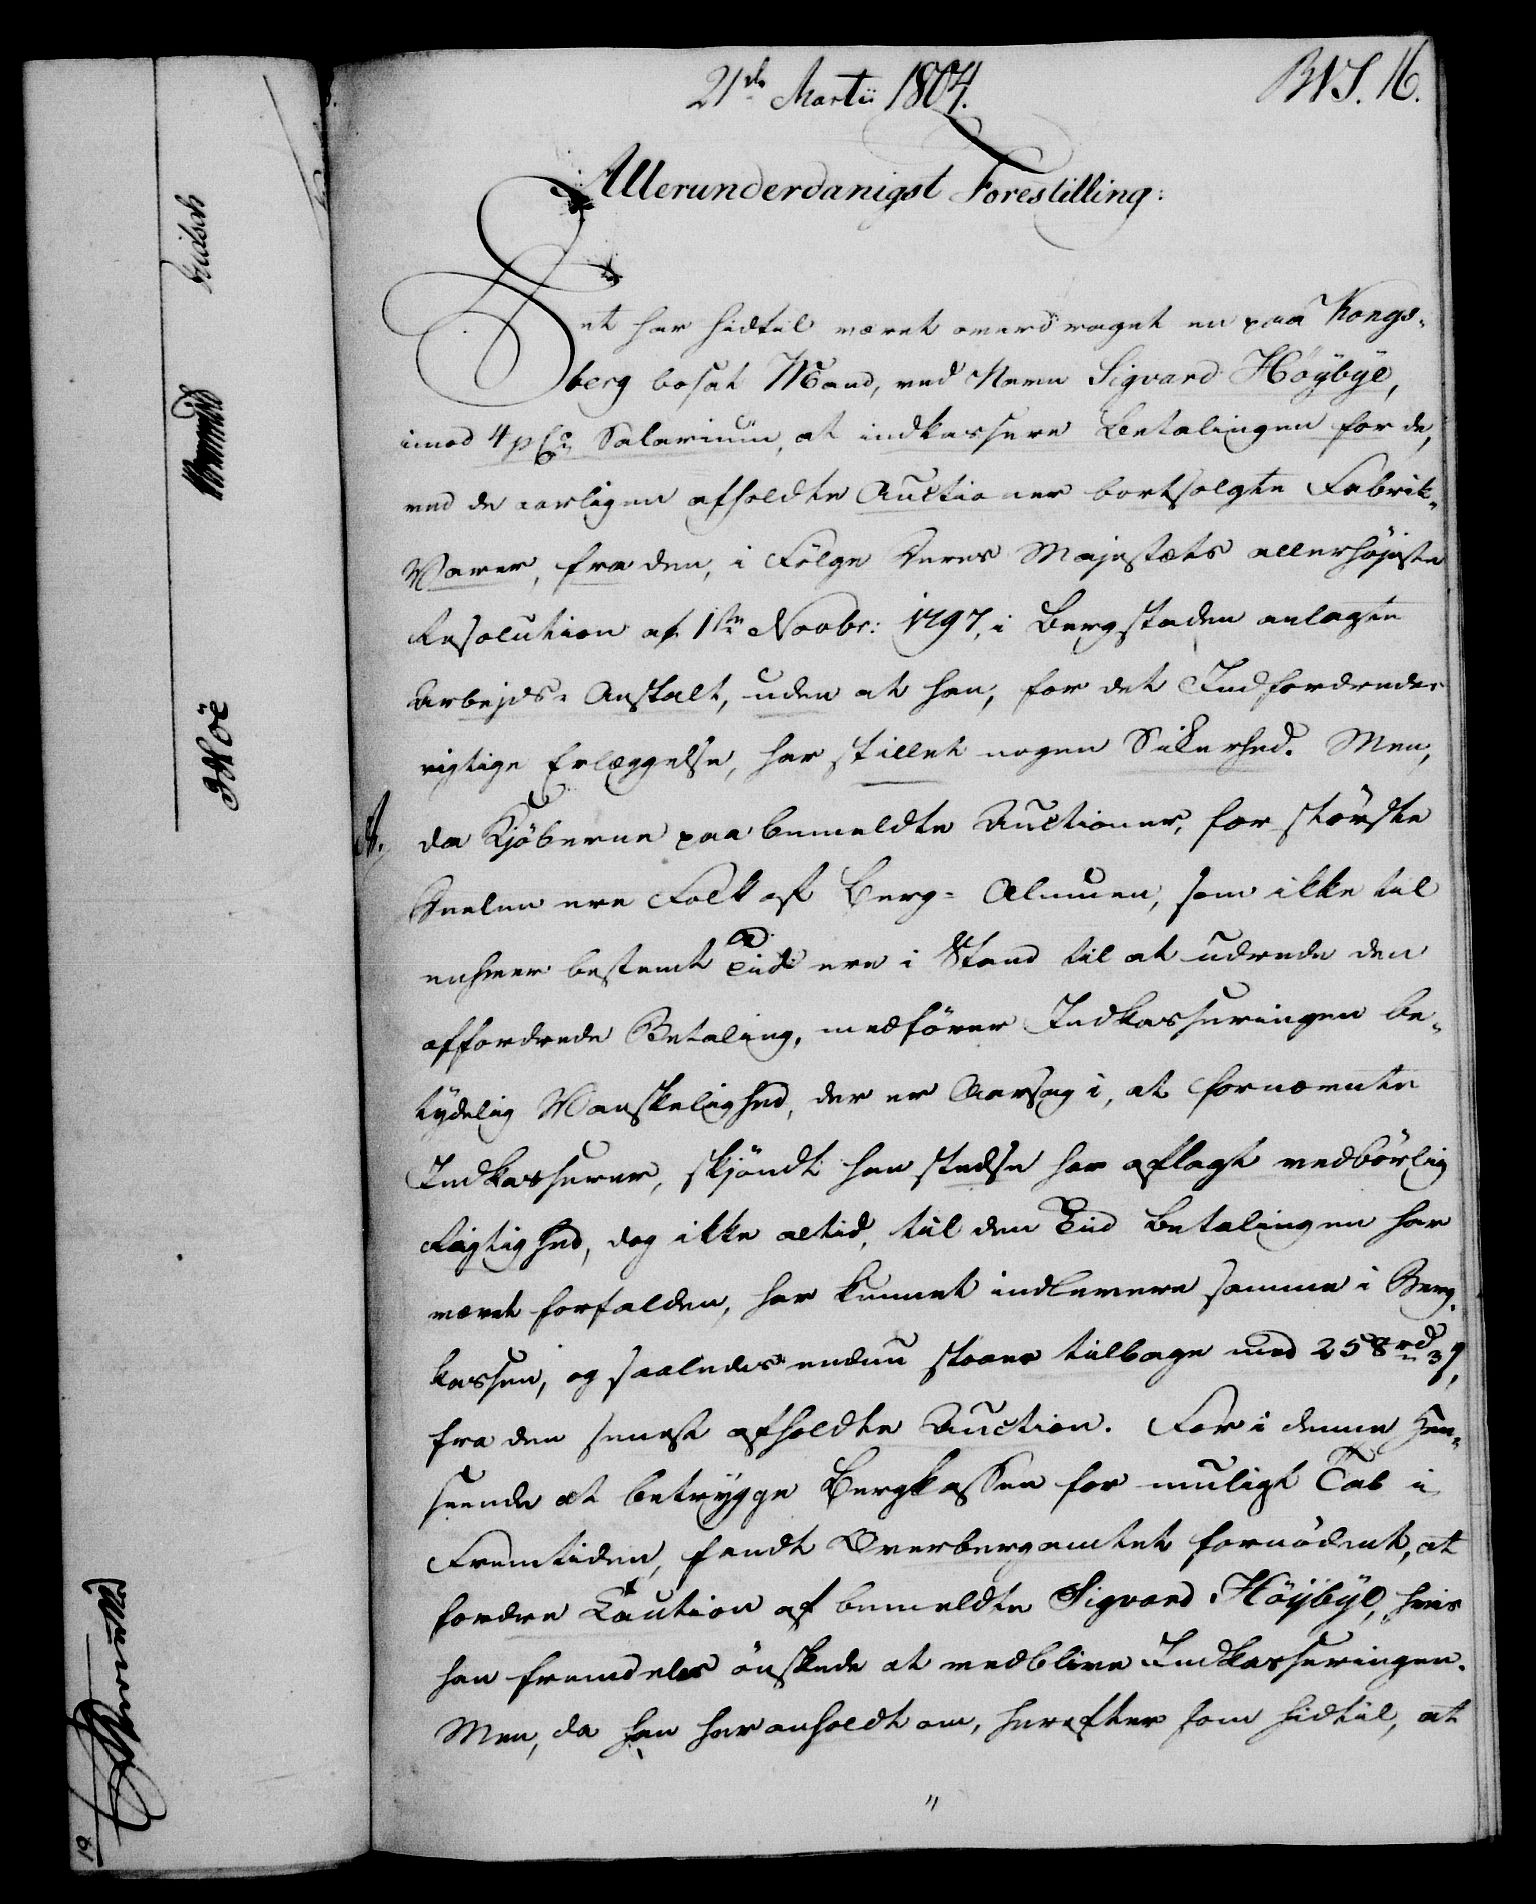 21de Martii 1804.
BNS. 16.
Allerunderdanigst Forestilling:
Det har hidtil været overdraget en paa Kongs-
berg bosat Mand, ved Navn Sigvard Höÿbÿe,
imod 4 p Co Salarium, at indkassere Betalingen for de,
ved de aarligen afholdte Auctioner bortsolgte Fabrik-
Varer, fra den, i Fölge Deres Majestæts allerhöjeste
Resolution af 1ste Novbr: 1797, i Bergstaden anlagte
Arbejds-Anstalt, uden at han, for det Indfordredes
rigtige Erlæggelse, har stillet nogen Sikerhed. Men,
da Kjöberne paa bemeldte Auctioner, for störste
Deelen ere Folk af Berg-Almuen, som ikke til
enhver bestemt Tid ere i Stand til at udrede den
affordrede Betaling, medförer Indkasseringen be-
tydelig Vanskelighed, der er Aarsag i, at fornævnte
Indkasserer, skjöndt han stedse har aflagt vedbörlig
Rigtighed, dog ikke altid, til den Tid Betalingen har
været forfalden, har kunnet indlevere samme i Berg-
kassen, og saaledes endnu staaer tilbage med 258 rd 37,
fra den senest afholdte Auction. For i denne Hen-
seende at betrygge Bergkassen for muligt Tab i
Fremtiden, fandt Overbergamtet fornödent, at
fordre Caution af bemeldte Sigvard Höÿbÿe, hvis
han fremdeles önskede at vedblive Indkasseringen.
Men, da han har anholdt om, herefter som hidtil, at
"